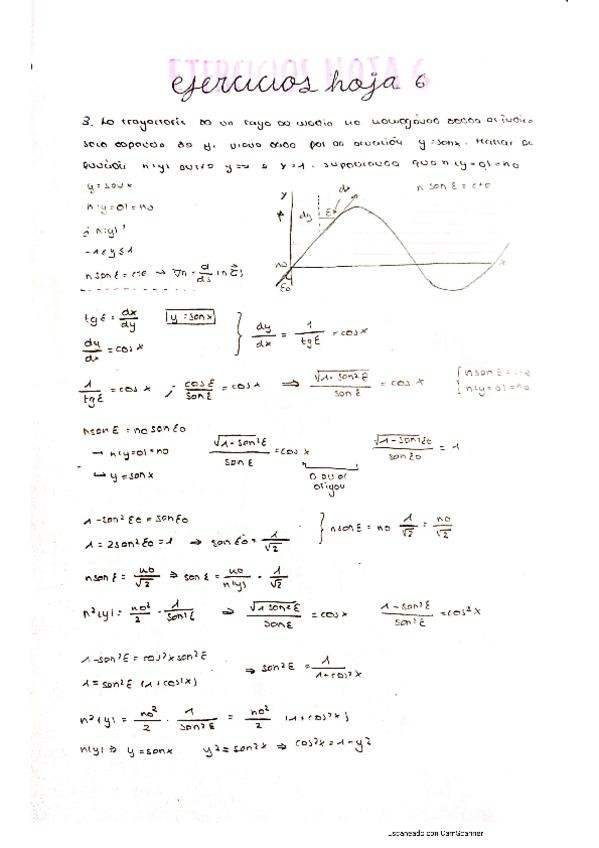 ejercicios hoja 6
3. La trayectoria de un rayo en medio no homogéneo cuyo índice
solo depende de y, viene dada por la ecuación y=senx. Hallar la
función n(y) entre y=-1 e y=1. suponiendo que n(y=0)=no
y=senx
n(y=0)=no
¿n(y)?
-1≤y≤1
n senε = cte → ∇n = d/ds (n t)
y
dy
dx
ε
n senε = cte
no
εo
x
tgε = dx/dy
y=senx
dy/dx = cosx
dy/dx = 1/tgε = cosx
1/tgε = cosx ; cosε/senε = cosx ⇒ √1-sen²ε/senε = cosx
n senε = cte
n(y=0)=no
n senε = no senεo
→ n(y=0)=no
↳ y=senx
√1-sen²ε/senε = cosx
√1-sen²εo/senεo = 1
origen
1-sen²εo = senεo
1 = 2sen²εo = 1 → senεo = 1/√2
n senε = no 1/√2 = no/√2
n senε = no/√2 ⇒ senε = no/n(y) · 1/√2
n²(y) = no²/2 · 1/sen²ε ⇒ √1-sen²ε/senε = cosx
1-sen²ε/sen²ε = cos²x
1-sen²ε = cos²x sen²ε
1 = sen²ε (1+cos²x)
⇒ sen²ε = 1/1+cos²x
n²(y) = no²/2 · 1/sen²ε = no²/2 (1+cos²x)
n(y) ⇒ y=senx y²=sen²x ⇒ cos²x = 1-y²
Escaneado con CamScanner